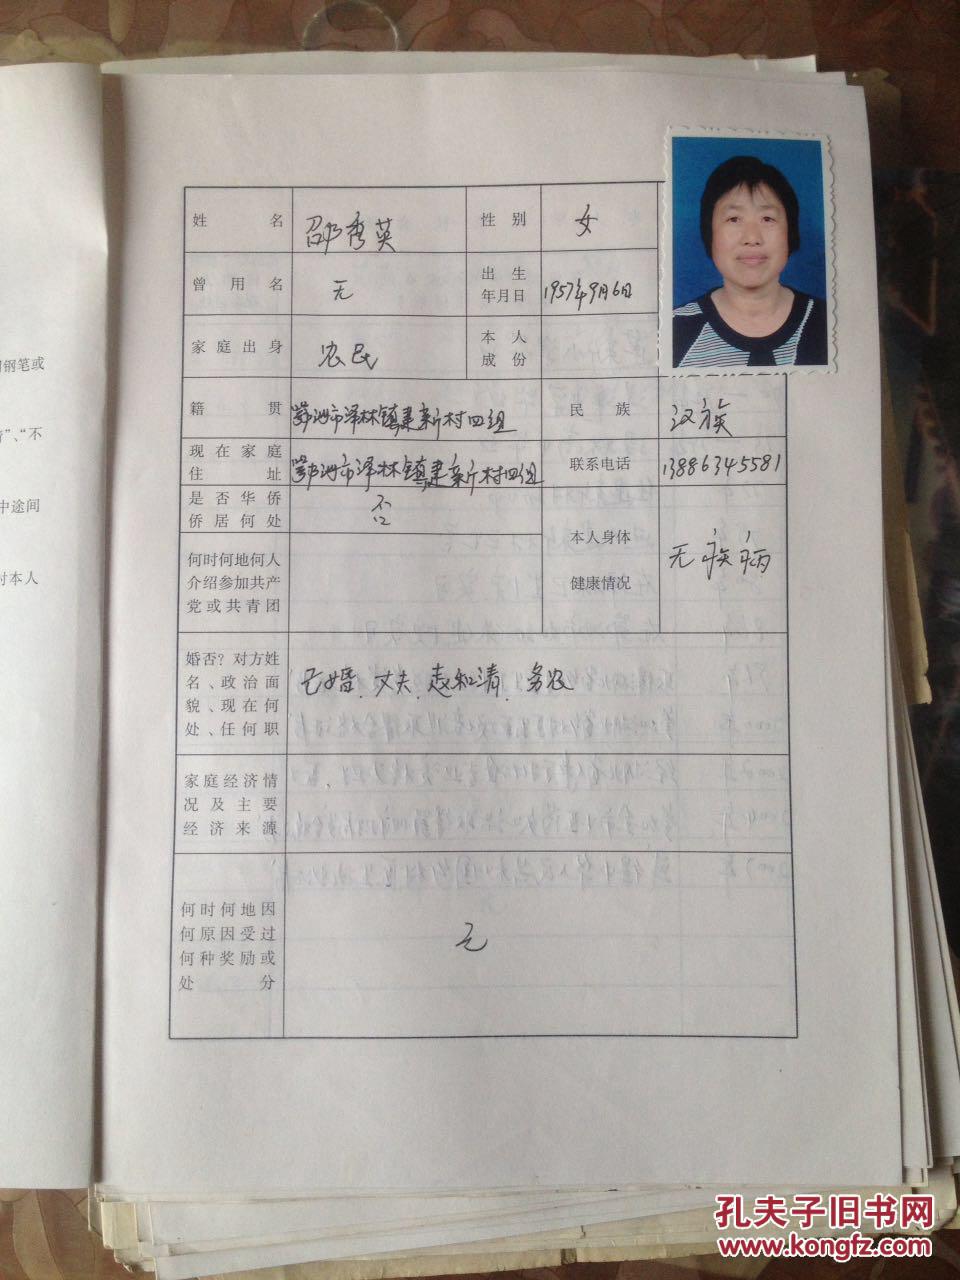 钢笔或
”、“不
中途间
对本人
姓名 邵秀英 性别 女
曾用名 无 出生年月日 1957年9月6日
家庭出身 农民 本人成份
籍贯 鄂州市泽林镇建新村四组 民族 汉族
现在家庭住址 鄂州市泽林镇建新村四组 联系电话 13886345581
是否华侨侨居何处 否
本人身体健康情况 无疾病
何时何地何人
介绍参加共产
党或共青团
婚否？对方姓
名、政治面
貌、现在何
处、任何职
已婚、丈夫、和清、务农
家庭经济情
况及主要
经济来源
何时何地因
何原因受过
何种奖励或
处分
无
孔夫子旧书网
www.kongfz.com